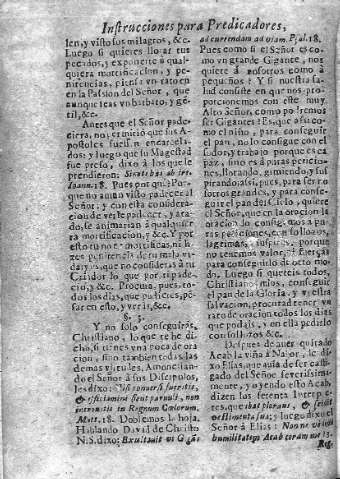 Instrucciones para Predicadores,
len, y visto sus milagros, &c.
Luego si quieres llorar tus
pecados, y exponerte a qual-
quiera mortificacion, y pe-
nitencias, piensa un rato en
en la Passion del Señor, que
aunque seas un barbaro, y gé-
til, &c.
Antes que el Señor pade-
ciera, no permitiò que sus A-
postoles fuessen encarcela-
dos: y luego que su Magestad
fue preso, dixo à los que le
prendieron: Sinite hos abire.
Ioann. 18. Pues porque? Por-
que no avian visto padecer al
Señor; y con esta considera-
cion de verle padecer, y ata-
do, se animarian à qualquiera
mortificacion, y &c. Y por
esto tu no te mortificas, ni ha-
zes penitencia de tu mala vi-
da, y es, que no consideras à tu
Criador lo que por ti pade-
ciò, y &c. Procura, pues, to-
dos los dias, que pudieres, pē-
sar en esto, y veràs, &c.
§. 3.
Y no solo conseguiràs,
Christiano, lo que te he di-
cho, si tienes una poca de ora-
cion, sino tambien todas las
demas virtudes. Amonestan-
do el Señor à sus Discipulos,
les dixo: Nisi conversi fueritis,
& efficiamini sicut parvuli, non
intrabitis in Regnum Cœlorum.
Matt. 18. Doblemos la hoja.
Hablando David de Christo
N. S. dixo: Exultavit ut Gigās
ad currendam ad viam. Psal. 18.
Pues como si el Señor es co-
mo un grande Gigante, nos
quiere à nosotros como à
pequeños? Y si nuestra sa-
lud consiste en que nos pro-
porcionemos con este muy
Alto Señor, como podremos
ser Gigantes? Es, que assi co-
mo el niño, para conseguir
el pan, no lo consigue con el
sudor, y trabajo porque es ca-
paz, sino es à puras peticio-
nes, llorando, gimiendo, y sus-
pirando: assi, pues, para ser no-
sotros grandes, y para conse-
guir el pan del Cielo, quiere
el Señor, que con la oracion lo
consigamos à pu-
ras peticiones, con sollozos,
lagrimas, suspiros, porque
no tenemos valor, ni fuerças
para conseguirlo de otro mo-
do. Luego si quereis todos,
Christianos mios, conseguir
el pan de la Gloria, y vuestra
salvacion, procurad tener un
rato de oracion todos los dias
que podais, y en ella pedirlo
con sollozos &c.
Despues de aver quitado
Acab la viña à Nabot, le di-
xo Elias, que avia de ser casti-
gado del Señor severissima-
mente, y oyendo esto Acab,
dizen los setenta Interpre-
tes, que ibat plorans, & 
: y luego dixo el
Señor à Elias: Nonne vidisti
humiliatum Acab coram me? 3.
Reg.